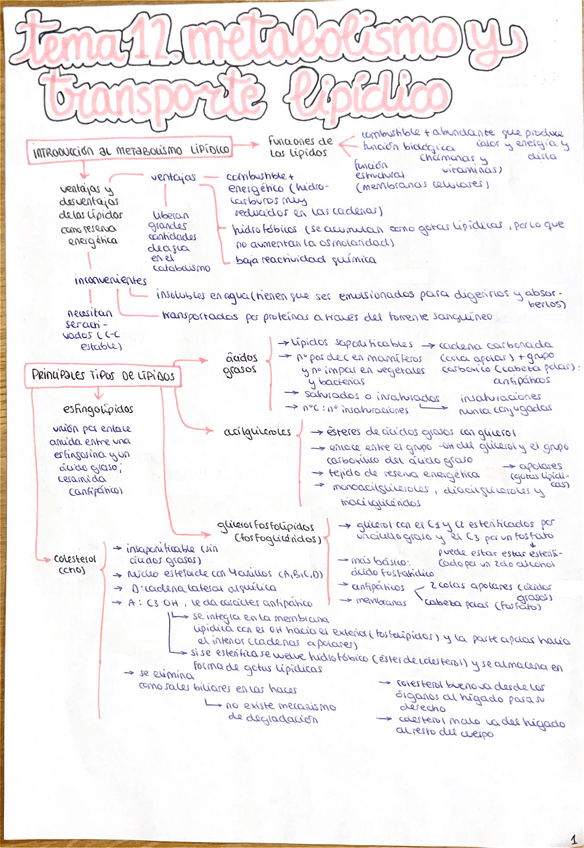 tema 12. metabolismo y
transporte lipídico
INTRODUCCIÓN AL METABOLISMO LIPÍDICO
funciones de
los lípidos
combustible + abundante que produce
calor y energía y
función biológica
hormonas y
vitaminas)
función
estructural
(membranas celulares)
ventajas y
desventajas
de los lípidos
como reserva
energética
ventajas
liberan
grandes
cantidades
de agua
en el
catabolismo
combustible +
energético (hidro-
carburos muy
reducidos en las cadenas)
hidrofóbicos (se acumulan como gotas lipídicas, por lo que
no aumentan la osmolaridad)
baja reactividad química
inconvenientes
insolubles en agua (tienen que ser emulsionados para digerirlos y absor-
berlos)
transportados por proteínas a través del torrente sanguíneo
necesitan
ser acti-
vados (C-C
estable)
PRINCIPALES TIPOS DE LÍPIDOS
ácidos
grasos
→ lípidos saponificables → cadena carbonada
(cola apolar) + grupo
carboxilo (cabeza polar):
anfipáticos
→ nº par de C en mamíferos
y nº impar en vegetales
y bacterias
→ saturados o insaturados
insaturaciones
nunca conjugadas
→ nºC: nº insaturaciones
esfingolípidos
unión por enlace
amida entre una
esfingosina y un
ácido graso;
ceramida
(anfipático)
acilgliceroles
→ ésteres de ácidos grasos con glicerol
→ enlace entre el grupo -OH del glicerol y el grupo
carboxilo del ácido graso
→ tejido de reserva energética
→ apolares
(gotas lipídi-
cas)
→ monoacilgliceroles, diacilgliceroles y
triacilglicéridos
glicerolfosfolípidos
(fosfoglicéridos)
→ glicerol con el C1 y C2 esterificados por
un ácido graso y el C3 por un fosfato
puede estar esterifi-
cado por un 2do alcohol
→ más básico:
ácido fosfatídico
→ anfipáticos
2 colas apolares (ácidos
grasos)
cabeza polar (fosfato)
→ membranas
colesterol
(cho)
→ insaponificable (sin
ácidos grasos)
→ núcleo esteroide con 4 anillos (A, B, C, D)
→ D: cadena lateral alquílica
→ A: C3 OH, le da carácter anfipático
→ se integra en la membrana
lipídica con el OH hacia el exterior (fosfolípidos) y la parte apolar hacia
el interior (cadenas apolares)
→ si se esterifica se vuelve hidrofóbico (éster de colesterol) y se almacena en
forma de gotas lipídicas
→ se elimina
como sales biliares en las heces
→ no existe mecanismo
de degradación
→ colesterol bueno va desde los
órganos al hígado para su
desecho
→ colesterol malo va del hígado
al resto del cuerpo
1